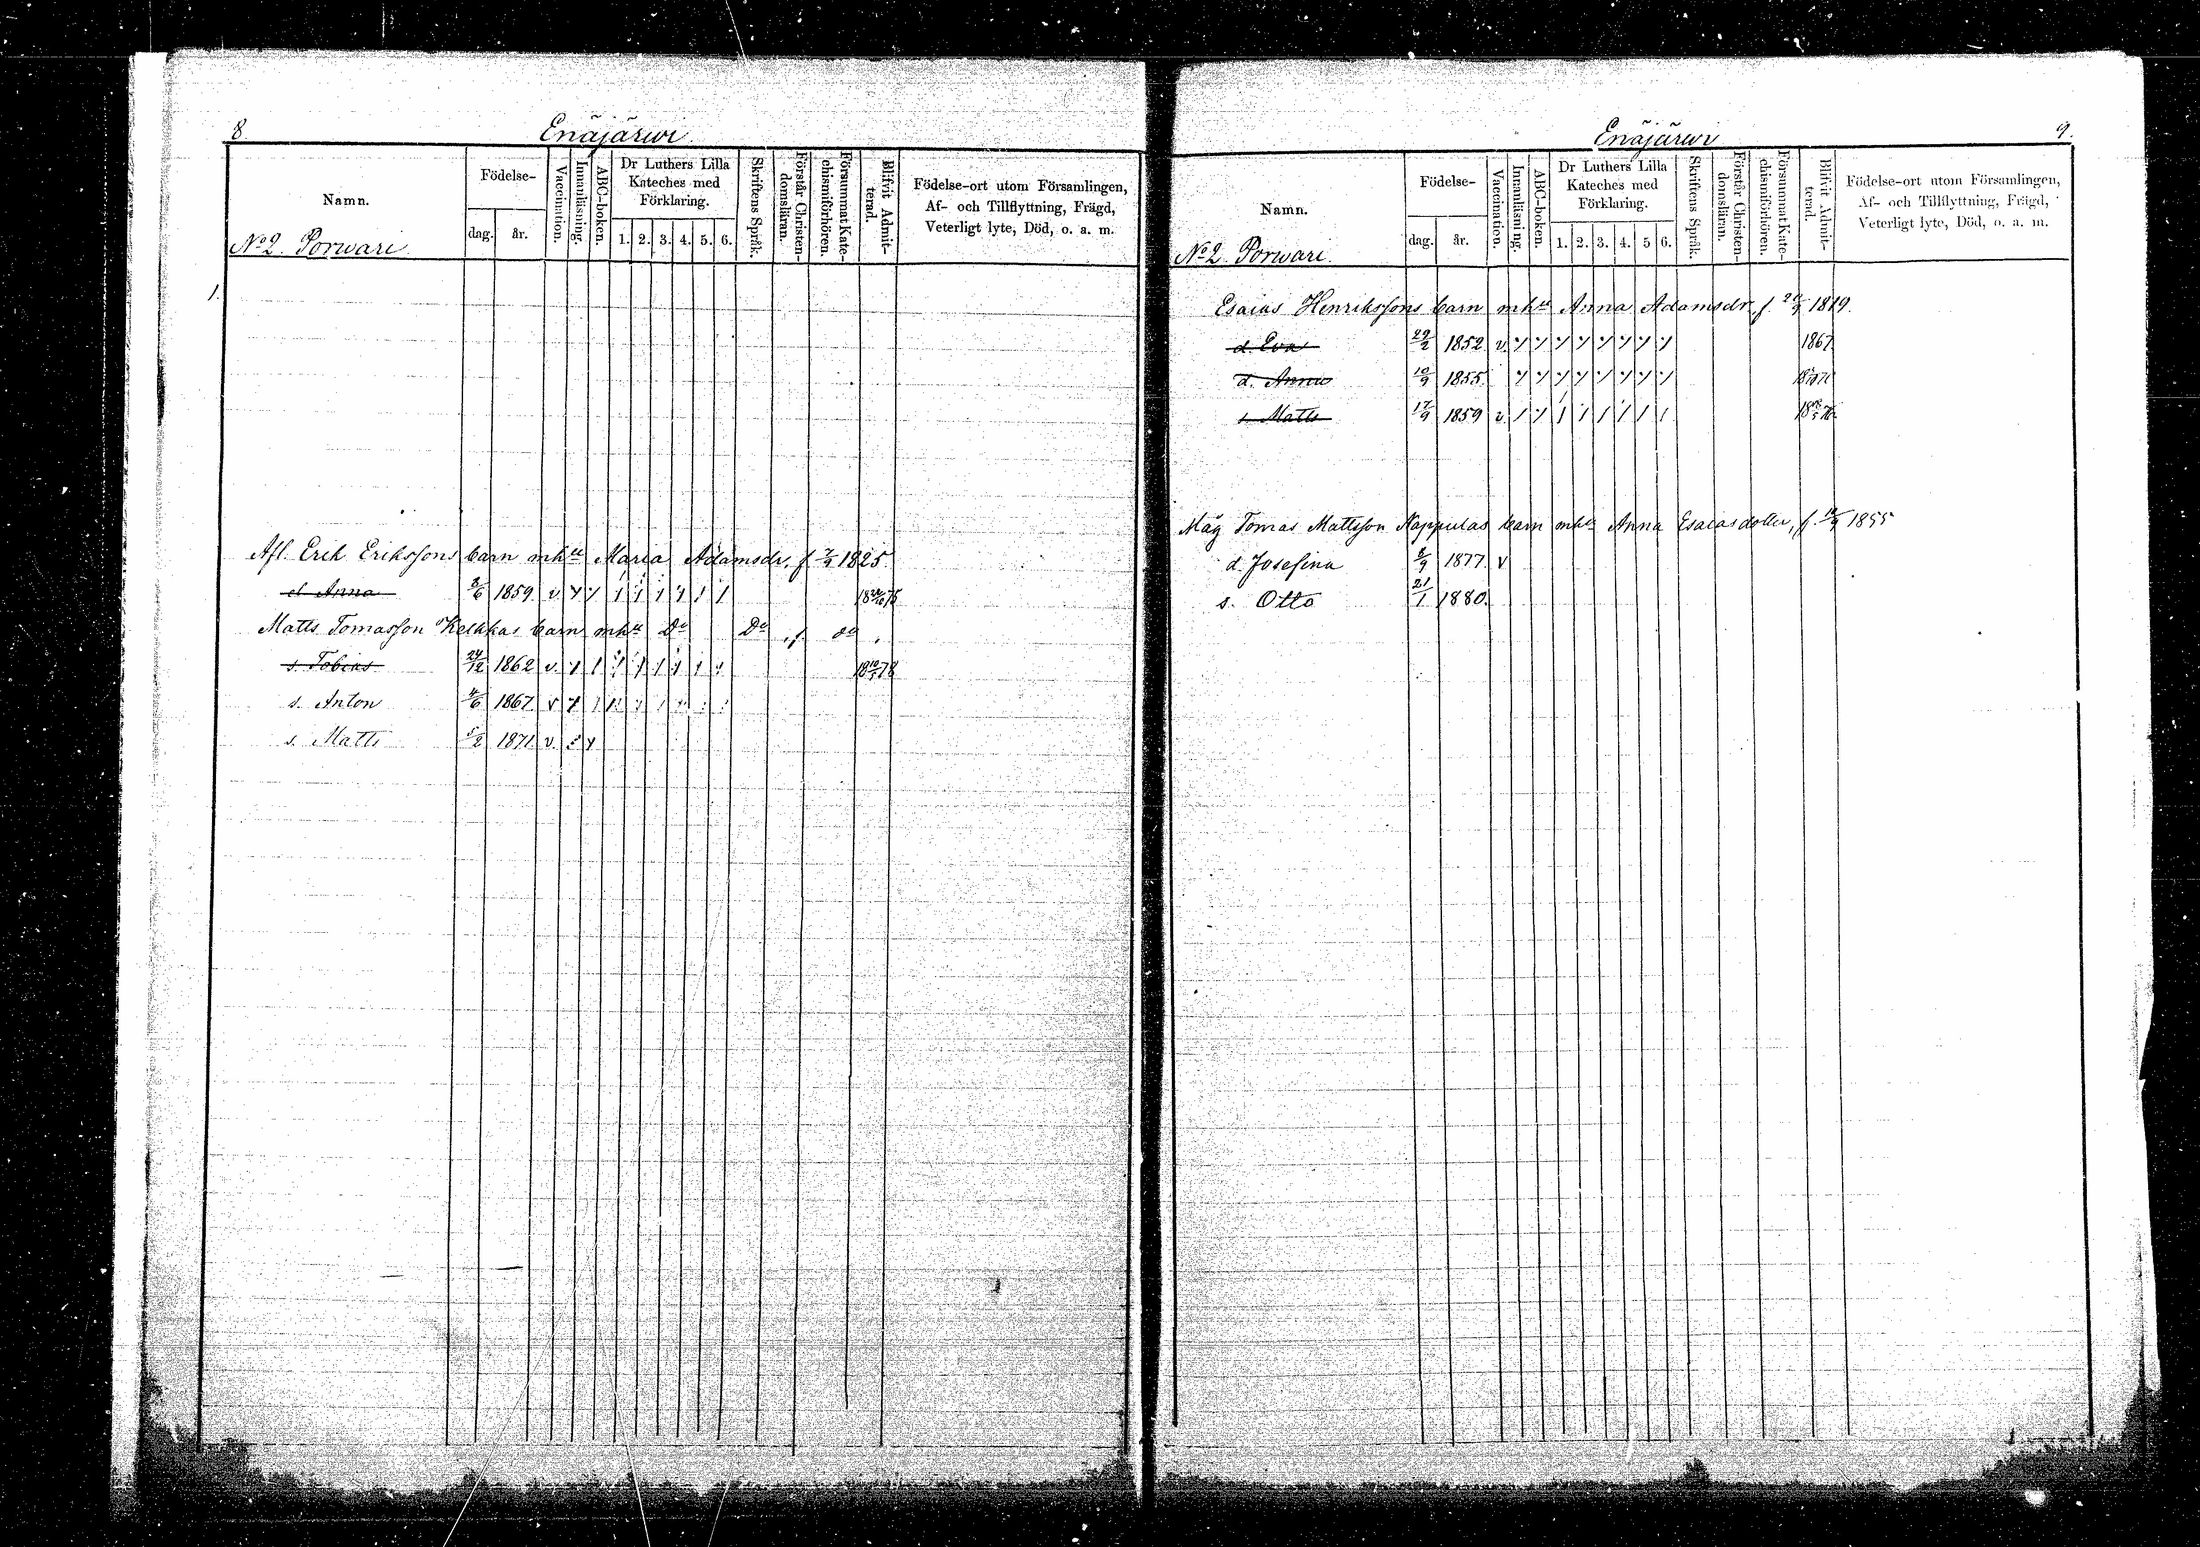 8.
Enäjärwi
Namn.
Födelse-
dag.
år.
Vaccination.
Innanläsning.
ABC-boken.
Dr Luthers Lilla Kateches med Förklaring.
1. 2. 3. 4. 5. 6.
Skriftens Språk.
Förstår Christendomsläran.
Försummat Katechismiförhören.
Blifvit Admitterad.
Födelse-ort utom Församlingen,
Af- och Tillflyttning, Frägd,
Veterligt lyte, Död, o. a. m.
No 2. Porwari
1.
Afl. Erik Erikssons barn mhu Maria Adamsdr, f. 1825.
d. Anna 8/6 1859. v
Matts Tomasson Kelkkas barn mhu Do Do, f. do,
s. Tobias 24/12 1862 v.
s. Anton 4/6 1867. v
s. Matts 5/2 1871. v.
Enäjärwi
9.
Namn.
Födelse-
dag.
år.
Vaccination.
Innanläsning.
ABC-boken.
Dr Luthers Lilla Kateches med Förklaring.
1. 2. 3. 4. 5 6.
Skriftens Språk.
Förstår Christendomsläran.
Försummat Katechismiförhören.
Blifvit Admitterad.
Födelse-ort utom Församlingen,
Af- och Tillflyttning, Frägd,
Veterligt lyte, Död, o. a. m.
No 2 Porwari
Esaias Henrikssons barn mhu Anna Adamsdr, f. 1819.
d. Eva 29/2 1852 v. 1867
d. Anna 10/9 1855.
s. Matts 17/9 1859 v.
Måg Tomas Mattsson Nappulas barn mhu Anna Esaiasdotter, f. 10/9 1855
d. Josefina 8/9 1877. v
s. Otto 21/1 1880.